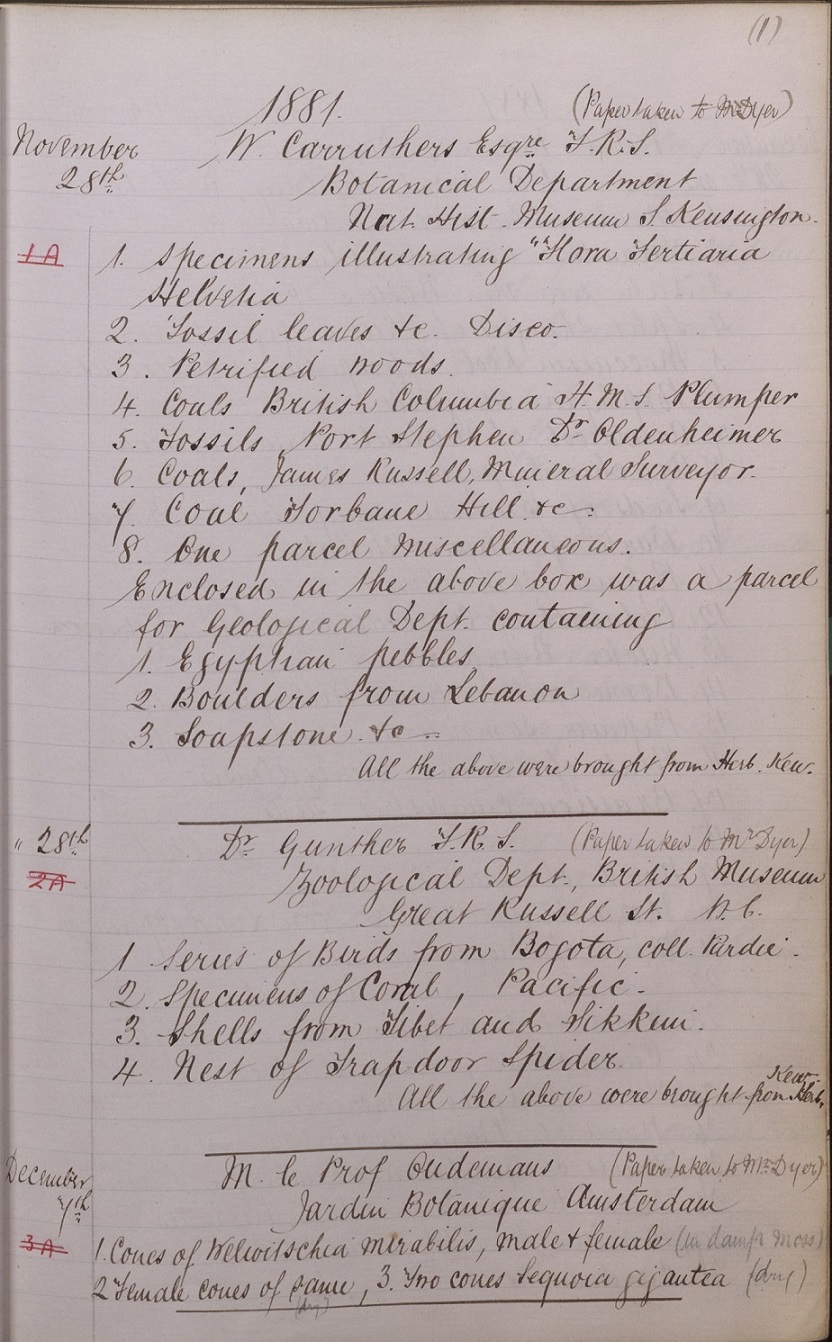 (1)
1881. (Paper taken to Mr Dyer)
November W. Carruthers Esqre F.R.S.
28th Botanical Department
Nat. Hist. Museum S. Kensington.
1A 1. Specimens illustrating "Flora Tertiaria
Helvetia
2. Fossil leaves &c. Disco.
3. Petrified woods.
4. Coals British Columbia H.M.S. Plumper
5. Fossils Port Stephen Dr Oldenheimer
6. Coals, James Russell, Mineral Surveyor.
7. Coal Torbane Hill &c.
8. One parcel Miscellaneous.
Enclosed in the above box was a parcel
for Geological Dept. containing
1. Egyptian pebbles
2. Boulders from Lebanon
3. Soapstone &c.
All the above were brought from Herb. Kew.
" 28th Dr Gunther F.R.S. (Paper taken to Mr Dyer)
2A Zoological Dept., British Museum
Great Russell St. W.C.
1 Series of Birds from Bogota, coll. Purdie.
2. Specimens of Coral, Pacific.
3. Shells from Tibet and Sikkim.
4. Nest of Trapdoor Spider.
Kew.
All the above were brought from Herb.
December M. le Prof Oudemans (Paper taken to Mr Dyer)
7th Jardin Botanique Amsterdam
3A 1. Cones of Welwitschia mirabilis, male & female (in damp moss)
2 Female cones of same, 3. Two cones Sequoia gigantea (dry)
(dry)